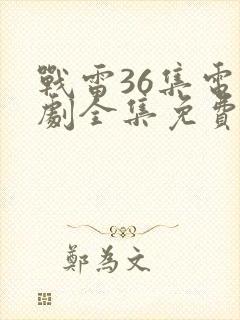 戰雷36集電
劇全集免費
鄭為文